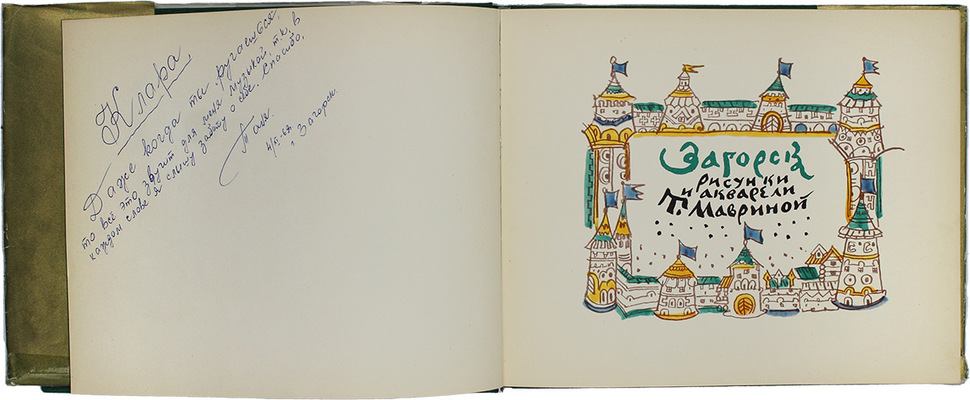 Клара
Даже когда ты ругаешься,
то всё это звучит для меня музыкой, т.к. в
каждом слове я слышу заботу о себе. Спасибо.
г. Загорск.
Загорск
рисунки
и акварели
Т. Мавриной